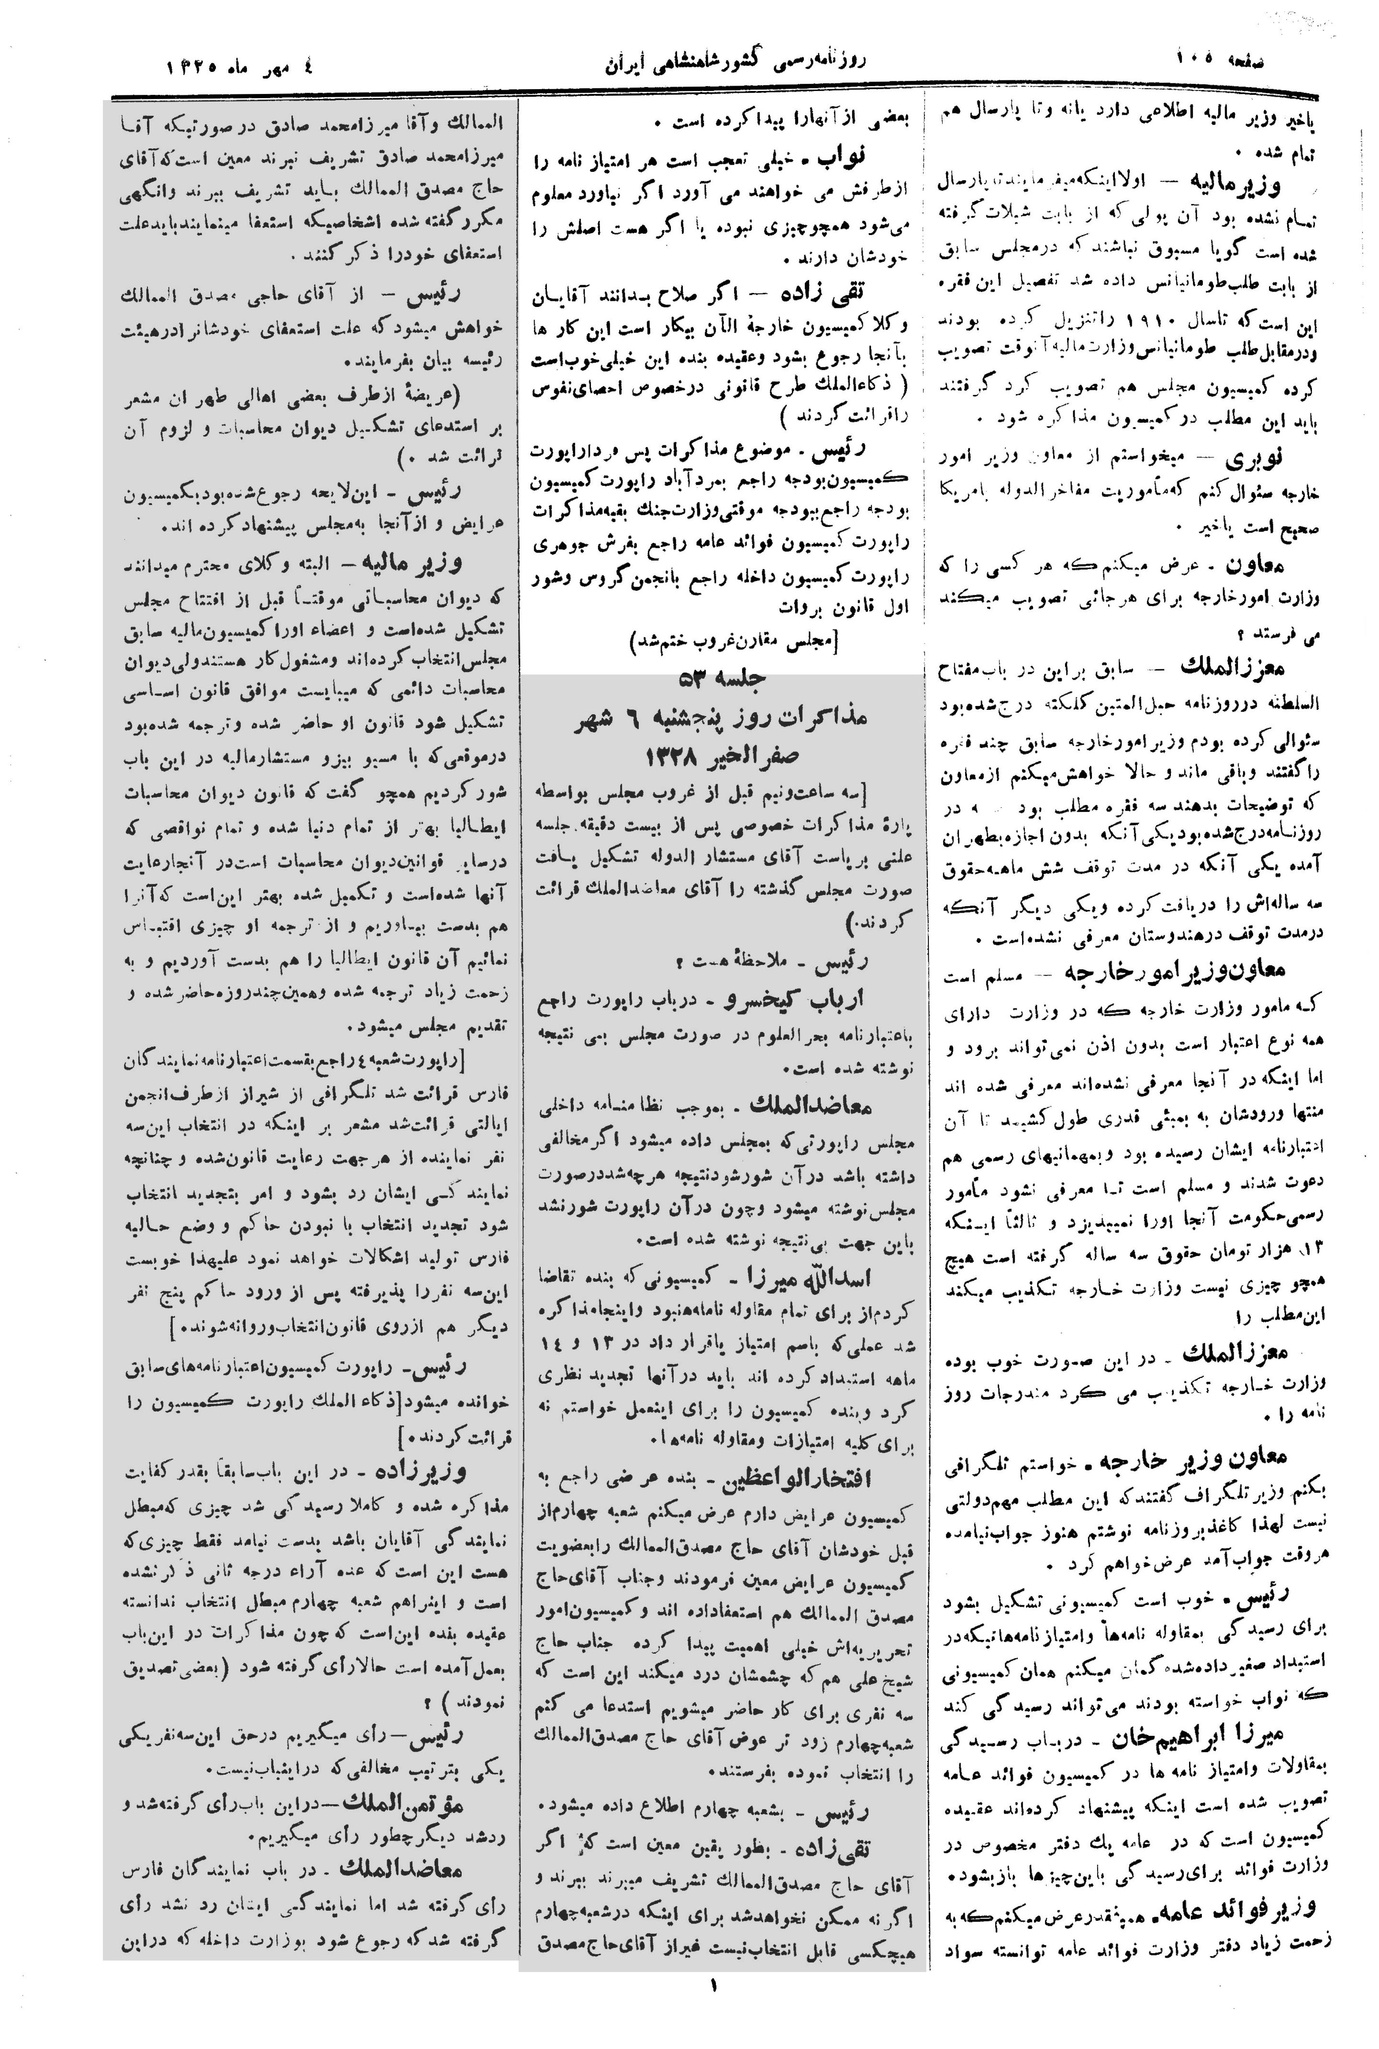 صفحه ۱۰۵
روزنامه رسمی کشور شاهنشاهی ایران
٤ مهر ماه ۱۳۲۵
یاخیر وزیر مالیه اطلاعی دارد یانه و تا پارسال هم
تمام شده .
وزیر مالیه — اولا اینکه میفرمایند تا پارسال
تمام نشده بود آن پولی که از بابت شیلات گرفته
شده است گویا مسبوق نباشند که درمجلس سابق
از بابت طلب طومانیانس داده شد تفصیل این فقره
این است که تاسال ۱۹۱۰ را تنزیل کرده بودند
ودرمقابل طلب طومانیانس وزارت مالیه آنوقت تصویب
کرده کمیسیون مجلس هم تصویب کرد گرفتند
باید این مطلب در کمیسیون مذاکره شود .
نوبری — میخواستم از معاون وزیر امور
خارجه سئوال کنم که مأموریت مفاخرالدوله بامریکا
صحیح است یاخیر .
معاون - عرض میکنم که هر کسی را که
وزارت امورخارجه برای هرجائی تصویب میکند
می فرستد ؟
معززالملك — سابق براین در باب مفتاح
السلطنه در روزنامه حبل المتین کلکته درج شده بود
سئوالی کرده بودم وزیر امورخارجه سابق چند فقره
را گفتند وباقی ماند و حالا خواهش میکنم ازمعاون
که توضیحات بدهند سه فقره مطلب بود که در
روزنامه درج شده بود یکی آنکه بدون اجازه بطهران
آمده یکی آنکه در مدت توقف شش ماهه حقوق
سه ساله اش را دریافت کرده ویکی دیگر آنکه
درمدت توقف درهندوستان معرفی نشده است .
معاون وزیر امور خارجه — مسلم است
که مامور وزارت خارجه که در وزارت دارای
همه نوع اعتبار است بدون اذن نمی تواند برود و
اما اینکه در آنجا معرفی نشده اند معرفی شده اند
منتها ورودشان به بمبئی قدری طول کشید تا آن
اعتبارنامه ایشان رسیده بود و بمهمانیهای رسمی هم
دعوت شدند و مسلم است تا معرفی نشود مأمور
رسمی حکومت آنجا اورا نمیپذیرد و ثالثاً اینکه
۱۳ هزار تومان حقوق سه ساله گرفته است هیچ
همچو چیزی نیست وزارت خارجه تکذیب میکند
این مطلب را
معززالملك - در این صورت خوب بوده
وزارت خارجه تکذیب می کرد مندرجات روز
نامه را .
معاون وزیر خارجه - خواستم تلگرافی
بکنم وزیر تلگراف گفتند که این مطلب مهم دولتی
نیست لهذا کاغذ بروزنامه نوشتم هنوز جواب نیامده
هروقت جواب آمد عرض خواهم کرد .
رئیس - خوب است کمیسیونی تشکیل بشود
برای رسیدگی بمقاوله نامه ها وامتیازنامه هائیکه در
استبداد صغیر داده شده گمان میکنم همان کمیسیونی
که نواب خواسته بودند می تواند رسیدگی کند
میرزا ابراهیم خان - درباب رسیدگی
بمقاولات وامتیاز نامه ها در کمیسیون فوائد عامه
تصویب شده است اینکه پیشنهاد کرده اند عقیده
کمیسیون است که در عامه یك دفتر مخصوص در
وزارت فوائد برای رسیدگی باین چیزها بازبشود .
وزیر فوائد عامه - همینقدر عرض میکنم که به
زحمت زیاد دفتر وزارت فوائد عامه توانسته سواد
بعضی از آنهارا پیدا کرده است .
نواب - خیلی تعجب است هر امتیاز نامه را
ازطرفش می خواهند می آورد اگر نیاورد معلوم
می شود همچو چیزی نبوده یا اگر هست اصلش را
خودشان دارند .
تقی زاده — اگر صلاح بدانند آقایان
وکلا کمیسیون خارجهٔ الآن بیکار است این کار ها
بآنجا رجوع بشود وعقیده بنده این خیلی خوب است
( ذکاءالملك طرح قانونی درخصوص احصای نفوس
راقرائت کردند )
رئیس - موضوع مذاکرات پس فردا راپورت
کمیسیون بودجه راجع بمردآباد راپورت کمیسیون
بودجه راجع ببودجه موقتی وزارت جنك بقیه مذاکرات
راپورت کمیسیون فوائد عامه راجع بفرش جوهری
راپورت کمیسیون داخله راجع بانجمن گروس وشور
اول قانون بروات
[مجلس مقارن غروب ختم شد)
جلسه ۵۳
مذاکرات روز پنجشنبه ٦ شهر
صفرالخیر ۱۳۲۸
[سه ساعت ونیم قبل از غروب مجلس بواسطه
پارهٔ مذاکرات خصوصی پس از بیست دقیقه جلسه
علنی بریاست آقای مستشار الدوله تشکیل یافت
صورت مجلس گذشته را آقای معاضدالملك قرائت
کردند.)
رئیس - ملاحظهٔ هست ؟
ارباب کیخسرو - درباب راپورت راجع
باعتبارنامه بحرالعلوم در صورت مجلس بی نتیجه
نوشته شده است.
معاضدالملك - بموجب نظامنامه داخلی
مجلس راپورتی که بمجلس داده میشود اگر مخالفی
داشته باشد درآن شور شود نتیجه هرچه شد درصورت
مجلس نوشته میشود وچون درآن راپورت شور نشد
باین جهت بی نتیجه نوشته شده است.
اسدالله میرزا - کمیسیونی که بنده تقاضا
کردم از برای تمام مقاوله نامه ها نبود واینجا مذاکره
شد عملی که باسم امتیاز یا قرار داد در ۱۳ و ۱٤
ماهه استبداد کرده اند باید درآنها تجدید نظری
کرد وبنده کمیسیون را برای اینعمل خواستم نه
برای کلیه امتیازات ومقاوله نامه ها.
افتخارالواعظین - بنده عرضی راجع به
کمیسیون عرایض دارم عرض میکنم شعبه چهارم از
قبل خودشان آقای حاج مصدق الممالك را بعضویت
کمیسیون عرایض معین فرمودند وجناب آقای حاج
مصدق الممالك هم استعفا داده اند و کمیسیون امور
تحریریه اش خیلی اهمیت پیدا کرده جناب حاج
شیخ علی هم که چشمشان درد میکند این است که
سه نفری برای کار حاضر میشویم استدعا می کنم
شعبه چهارم زود تر عوض آقای حاج مصدق الممالك
را انتخاب نموده بفرستند.
رئیس - بشعبه چهارم اطلاع داده میشود.
تقی زاده - بطور یقین معین است که اگر
آقای حاج مصدق الممالك تشریف میبرند ببرند و
اگر نه ممکن نخواهد شد برای اینکه درشعبه چهارم
هیچکسی قابل انتخاب نیست غیراز آقای حاج مصدق
الممالك وآقا میرزامحمد صادق درصورتیکه آقا
میرزامحمد صادق تشریف نبرند معین است که آقای
حاج مصدق الممالك باید تشریف ببرند وانگهی
مکرر گفته شده اشخاصیکه استعفا مینمایند باید علت
استعفای خودرا ذکر کنند .
رئیس — از آقای حاجی مصدق الممالك
خواهش میشود که علت استعفای خودشانرا درهیئت
رئیسه بیان بفرمایند.
(عریضهٔ ازطرف بعضی اهالی طهران مشعر
بر استدعای تشکیل دیوان محاسبات و لزوم آن
قرائت شد .)
رئیس - این لایحه رجوع شده بود بکمیسیون
عرایض و از آنجا به مجلس پیشنهاد کرده اند.
وزیر مالیه — البته وکلای محترم میدانند
که دیوان محاسباتی موقتاً قبل از افتتاح مجلس
تشکیل شده است و اعضاء اورا کمیسیون مالیه سابق
مجلس انتخاب کرده اند ومشغول کار هستند ولی دیوان
محاسبات دائمی که میبایست موافق قانون اساسی
تشکیل شود قانون او حاضر شده وترجمه شده بود
درموقعی که با مسیو بیزو مستشار مالیه در این باب
شور کردیم همچو گفت که قانون دیوان محاسبات
ایطالیا بهتر از تمام دنیا شده و تمام نواقصی که
درسایر قوانین دیوان محاسبات است در آنجا رعایت
آنها شده است و تکمیل شده بهتر این است که آنرا
هم بدست بیاوریم و از ترجمه او چیزی اقتباس
نمائیم آن قانون ایطالیا را هم بدست آوردیم و به
زحمت زیاد ترجمه شده وهمین چند روزه حاضر شده و
تقدیم مجلس میشود.
[راپورت شعبه ٤ راجع بقسمت اعتبارنامه نمایندگان
فارس قرائت شد تلگرافی از شیراز ازطرف انجمن
ایالتی قرائت شد مشعر بر اینکه در انتخاب این سه
نفر نماینده از هرجهت رعایت قانون شده و چنانچه
نمایندگی ایشان رد بشود و امر بتجدید انتخاب
شود تجدید انتخاب با نبودن حاکم و وضع حالیه
فارس تولید اشکالات خواهد نمود علیهذا خوبست
این سه نفررا پذیرفته پس از ورود حاکم پنج نفر
دیگر هم ازروی قانون انتخاب و روانه شوند.]
رئیس- راپورت کمیسیون اعتبارنامه های سابق
خوانده میشود [ذکاءالملك راپورت کمیسیون را
قرائت کردند.]
وزیرزاده - در این باب سابقاً بقدر کفایت
مذاکره شده و کاملا رسیدگی شد چیزی که مبطل
نمایندگی آقایان باشد بدست نیامد فقط چیزی که
هست این است که عده آراء درجه ثانی ذکر نشده
است و اینراهم شعبه چهارم مبطل انتخاب ندانسته
عقیده بنده این است که چون مذاکرات در این باب
بعمل آمده است حالا رأی گرفته شود (بعضی تصدیق
نمودند ) ؟
رئیس — رأی میگیریم درحق این سه نفر یکی
یکی بترتیب مخالفی که دراینباب نیست.
مؤتمن الملك — دراین باب رأی گرفته شد و
ردشد دیگر چطور رأی میگیریم.
معاضدالملك - در باب نمایندگان فارس
رأی گرفته شد اما نمایندگی ایشان رد نشد رأی
گرفته شد که رجوع شود بوزارت داخله که دراین
۱